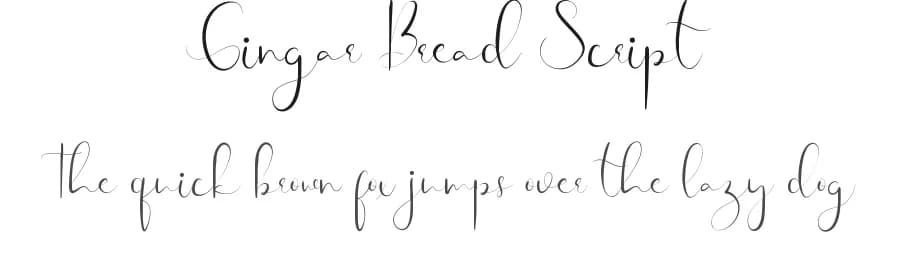 Gingar Bread Script
The quick brown fox jumps over the lazy dog